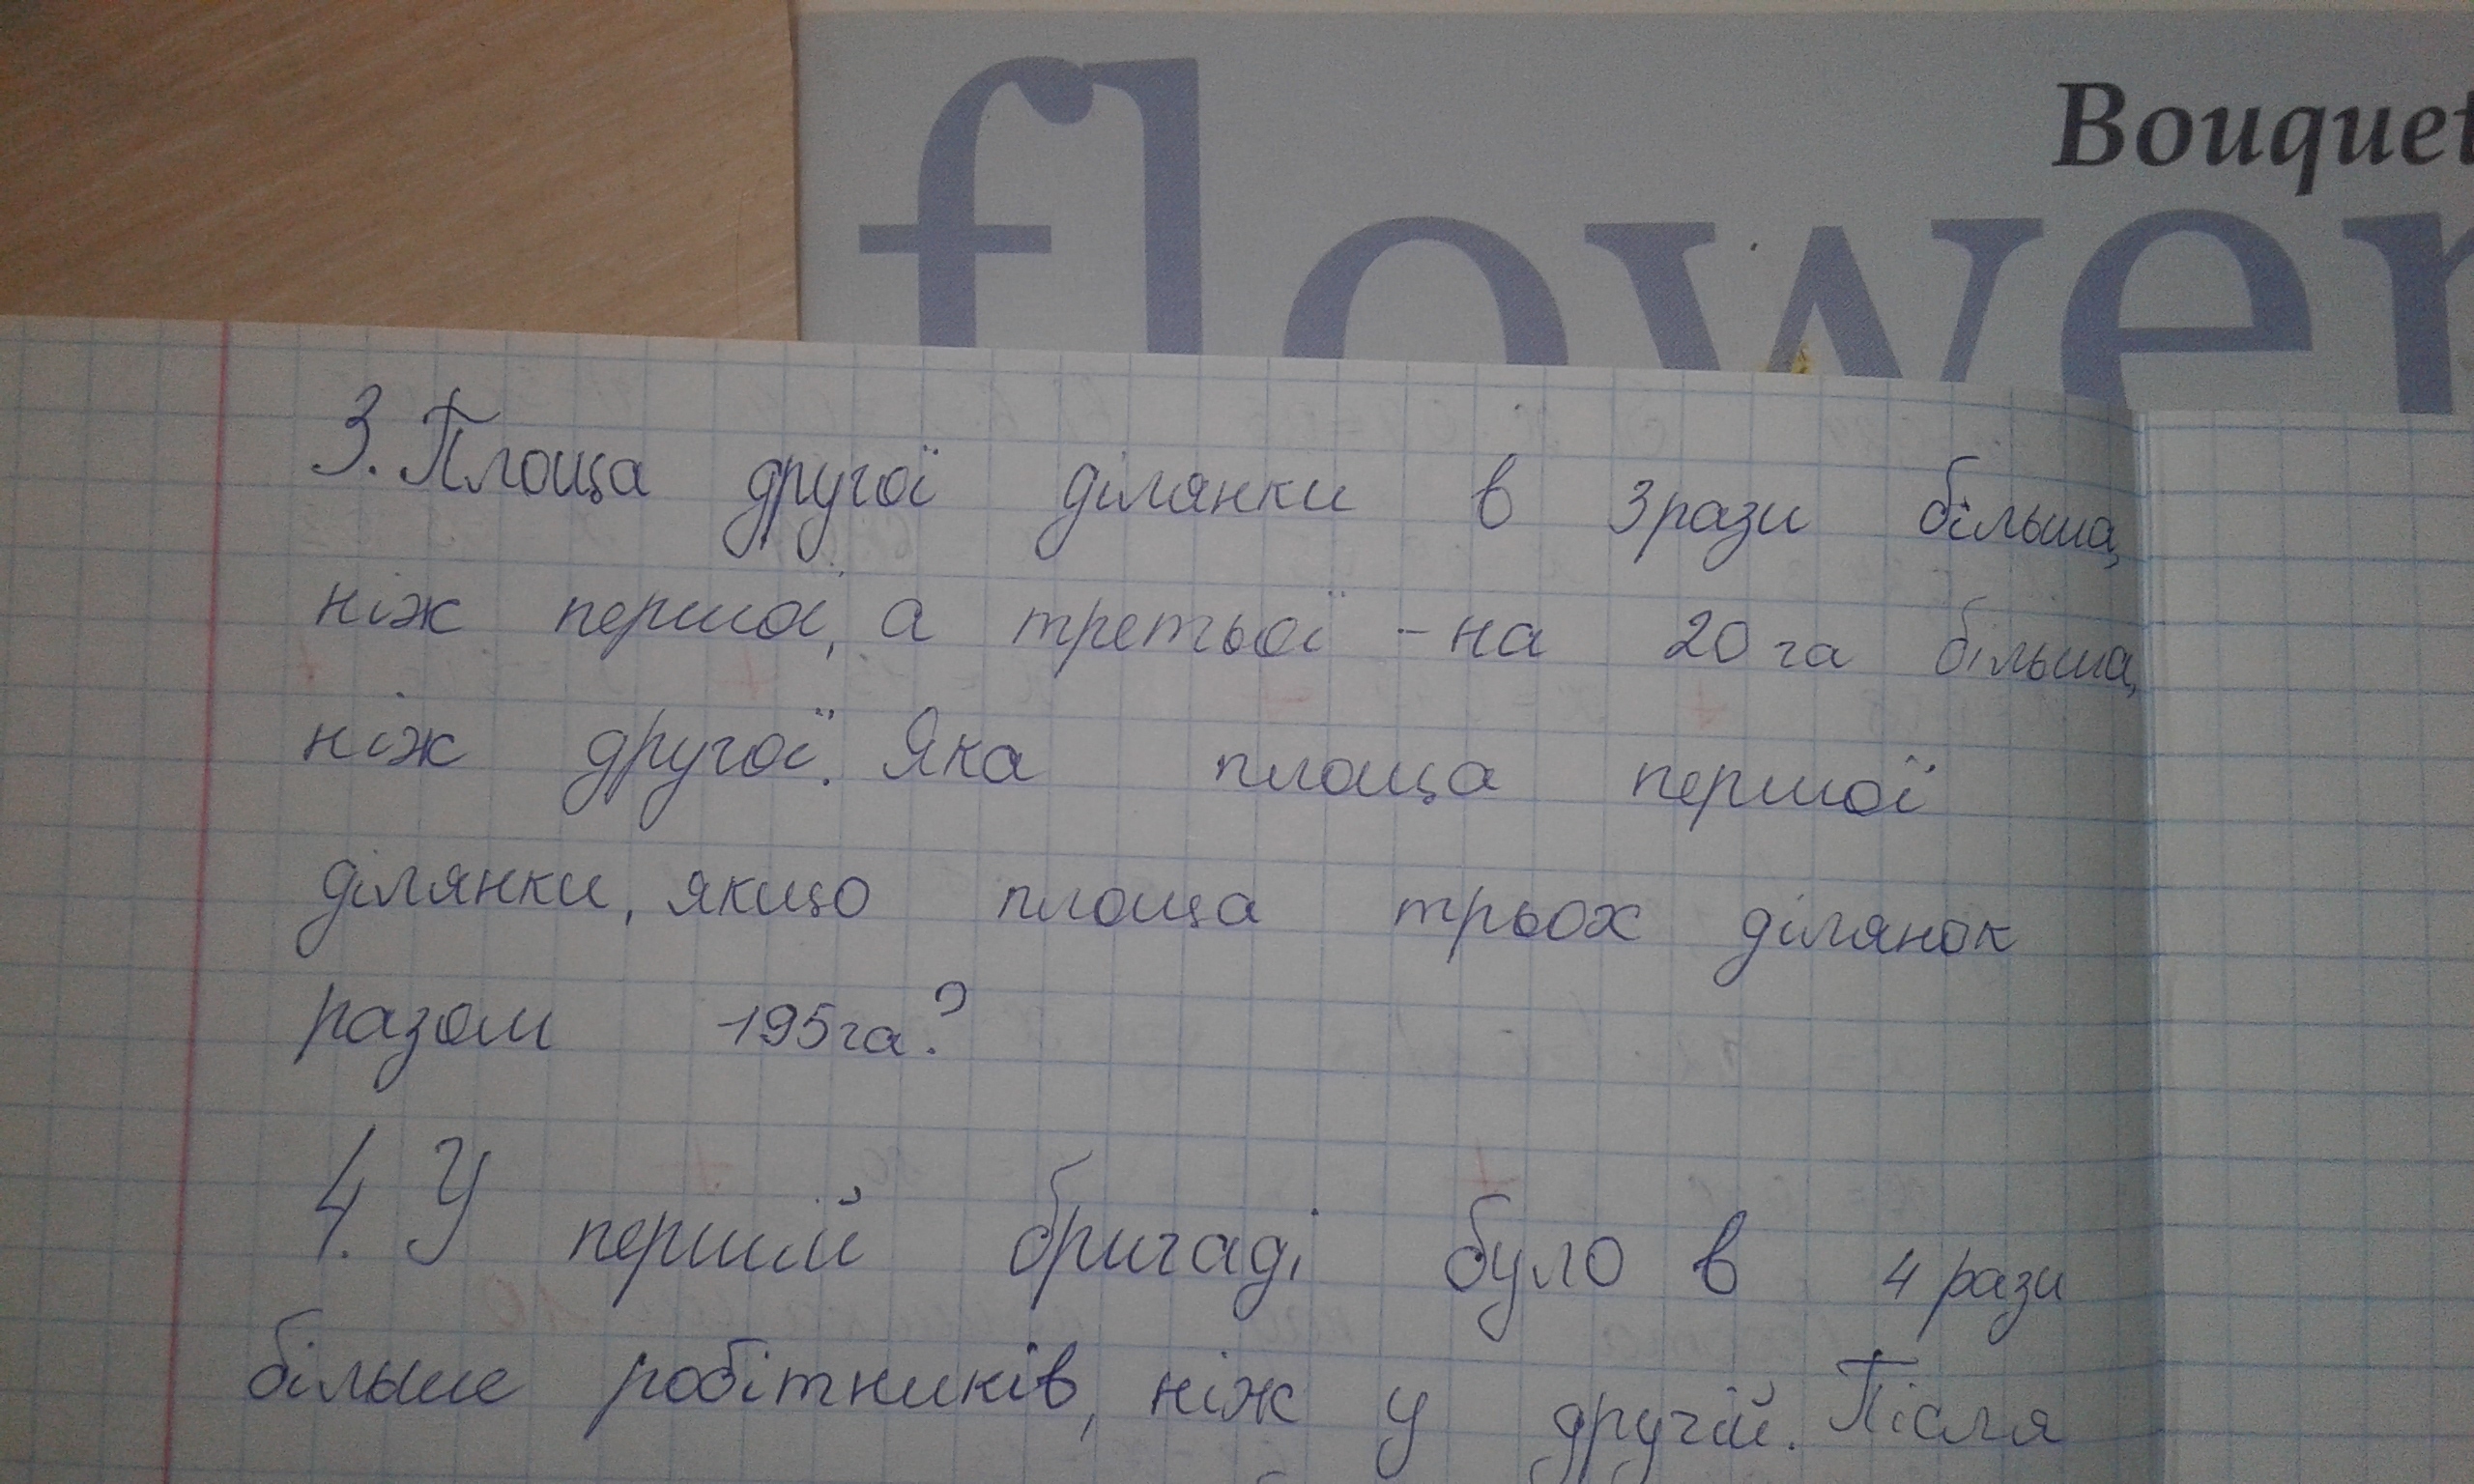 Bouquet
flower
3. Площа другої ділянки в 3 рази більша,
ніж першої, а третьої - на 20 га більша,
ніж другої. Яка площа першої
ділянки, якщо площа трьох ділянок
разом 195 га?
4. У першій бригаді було в 4 рази
більше робітників, ніж у другій. Після